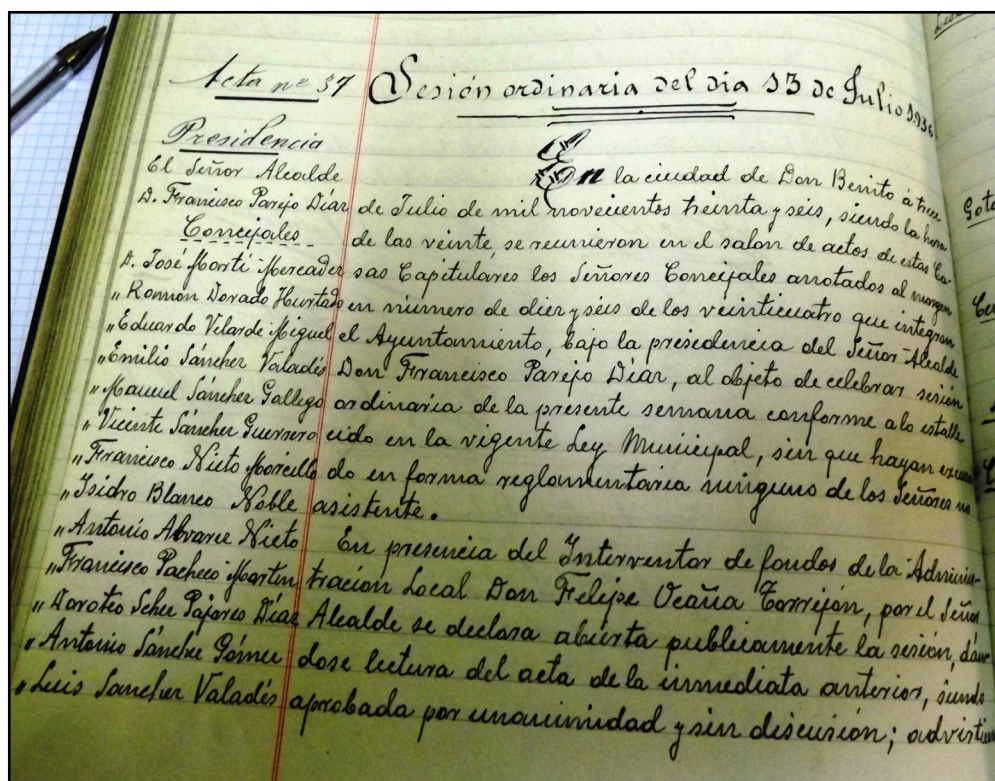 Acta nº 37 Sesión ordinaria del dia 13 de Julio 1936
Presidencia
El Señor Alcalde
D. Francisco Parejo Díaz
Concejales
D. José Martí Mercader
" Roman Dorado Hurtado
" Eduardo Velarde Miguel
" Emilio Sánchez Valadés
" Manuel Sánchez Gallego
" Vicente Sánchez Guerrero
" Francisco Nieto Morcillo
" Isidro Blanco Noble
" Antonio Alvarez Nieto
" Francisco Pacheco Martin
" Doroteo Schez Pajares Díaz
" Antonio Sánchez Gómez
" Luis Sanchez Valadés
En la ciudad de Don Benito á trece
de Julio de mil novecientos treinta y seis, siendo la hora
de las veinte se reunieron en el salon de actos de estas Ca-
sas Capituláres los Señores Concejales anotados al margen
en número de diez y séis de los veinticuatro que integran
el Ayuntamiento, bajo la presidencia del Señor Alcalde
Don Francisco Parejo Díaz, al objeto de celebrar sesión
ordinaria de la presente semana conforme a lo estable
cido en la vigente Ley Municipal, sin que hayan excusa
do en forma reglamentaria ninguno de los Señores no
asistente.
En presencia del Interventor de fondos de la Adminis-
tracion Local Don Felipe Ocaña Torrejón, por el Señor
Alcalde se declara abierta publicamente la sesión, dán-
dose lectura del acta de la inmediata anterior, siendo
aprobada por unanimidad y sin discusión; advirtien